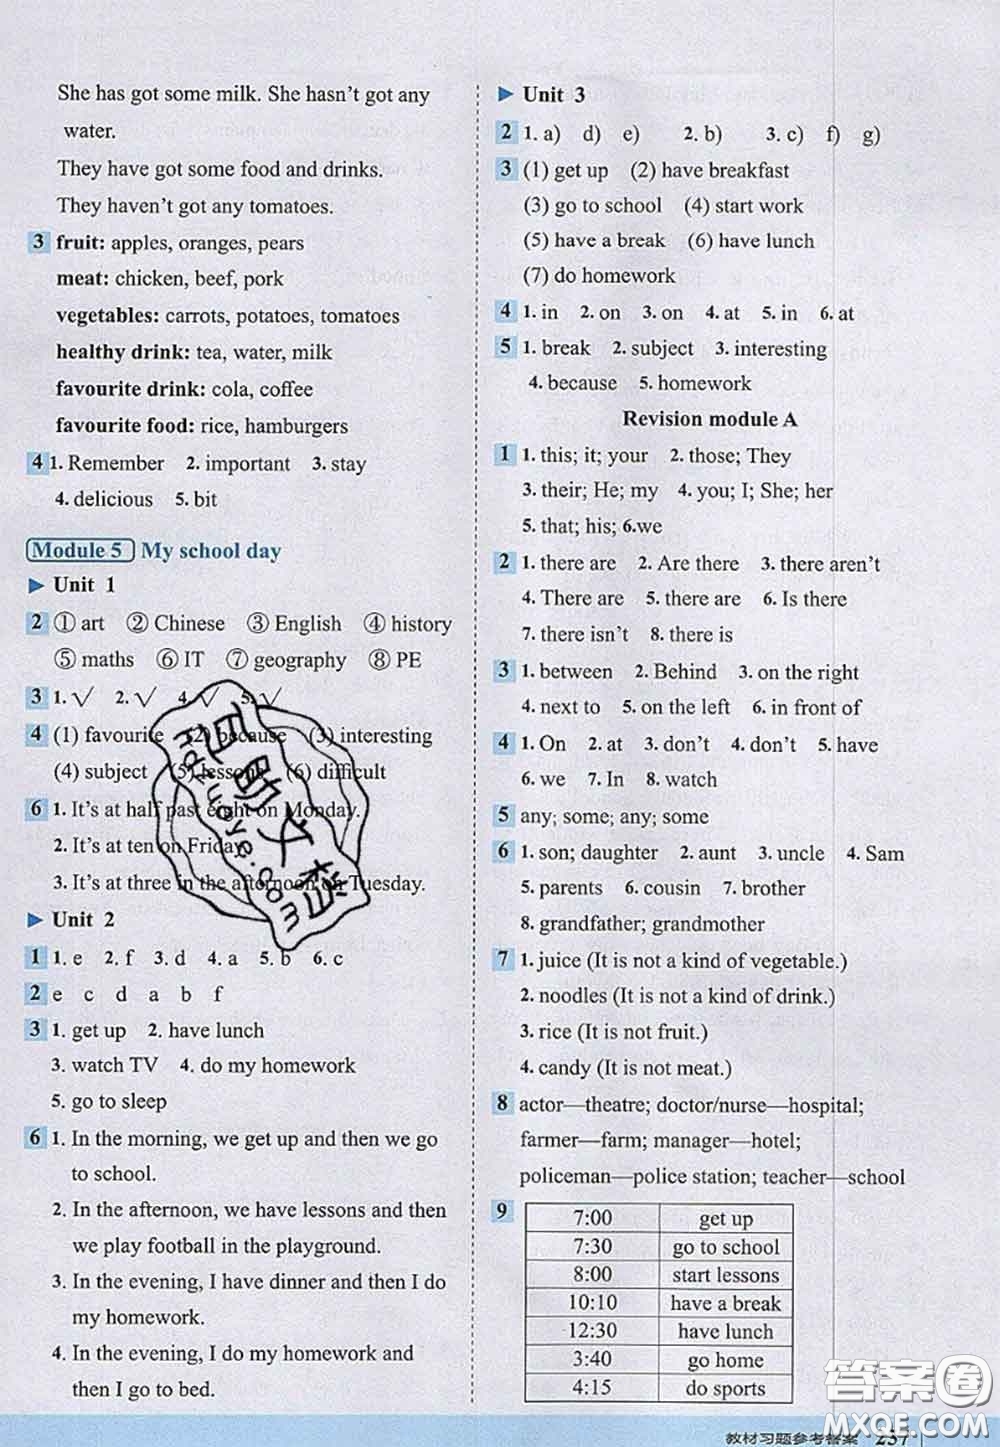 She has got some milk. She hasn't got any
water.
They have got some food and drinks.
They haven't got any tomatoes.
3 fruit: apples, oranges, pears
meat: chicken, beef, pork
vegetables: carrots, potatoes, tomatoes
healthy drink: tea, water, milk
favourite drink: cola, coffee
favourite food: rice, hamburgers
4 1. Remember 2. important 3. stay
4. delicious 5. bit
Module 5 My school day
▶ Unit 1
2 ① art ② Chinese ③ English ④ history
⑤ maths ⑥ IT ⑦ geography ⑧ PE
3 1. √ 2. √ 4. √ 5. √
4 (1) favourite (2) because (3) interesting
(4) subject (5) lessons (6) difficult
6 1. It's at half past eight on Monday.
2. It's at ten on Friday.
3. It's at three in the afternoon on Tuesday.
▶ Unit 2
1 1. e 2. f 3. d 4. a 5. b 6. c
2 e c d a b f
3 1. get up 2. have lunch
3. watch TV 4. do my homework
5. go to sleep
6 1. In the morning, we get up and then we go
to school.
2. In the afternoon, we have lessons and then
we play football in the playground.
3. In the evening, I have dinner and then I do
my homework.
4. In the evening, I do my homework and
then I go to bed.
▶ Unit 3
2 1. a) d) e) 2. b) 3. c) f) g)
3 (1) get up (2) have breakfast
(3) go to school (4) start work
(5) have a break (6) have lunch
(7) do homework
4 1. in 2. on 3. on 4. at 5. in 6. at
5 1. break 2. subject 3. interesting
4. because 5. homework
Revision module A
1 1. this; it; your 2. those; They
3. their; He; my 4. you; I; She; her
5. that; his; 6.we
2 1. there are 2. Are there 3. there aren't
4. There are 5. there are 6. Is there
7. there isn't 8. there is
3 1. between 2. Behind 3. on the right
4. next to 5. on the left 6. in front of
4 1. On 2. at 3. don't 4. don't 5. have
6. we 7. In 8. watch
5 any; some; any; some
6 1. son; daughter 2. aunt 3. uncle 4. Sam
5. parents 6. cousin 7. brother
8. grandfather; grandmother
7 1. juice (It is not a kind of vegetable.)
2. noodles (It is not a kind of drink.)
3. rice (It is not fruit.)
4. candy (It is not meat.)
8 actor—theatre; doctor/nurse—hospital;
farmer—farm; manager—hotel;
policeman—police station; teacher—school
9 7:00 get up
7:30 go to school
8:00 start lessons
10:10 have a break
12:30 have lunch
3:40 go home
4:15 do sports
教材习题参考答案 237
答案圈
MXQE.COM